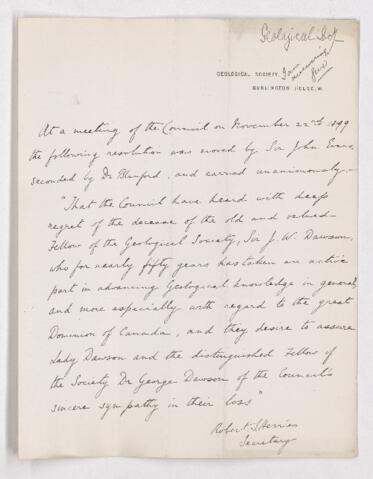 Geological Soc
GEOLOGICAL SOCIETY,
BURLINGTON HOUSE, W.
At a meeting of the Council on November 22nd 1899
the following resolution was moved by Sir John Evans,
seconded by Dr Blanford, and carried unanimously:-
"That the Council have heard with deep
regret of the decease of the old and valued
Fellow of the Geological Society, Sir J. W. Dawson,
who for nearly fifty years has taken an active
part in advancing Geological knowledge in general,
and more especially with regard to the great
Dominion of Canada, and they desire to assure
Lady Dawson and the distinguished Fellow of
the Society Dr George Dawson of the Council's
sincere sympathy in their loss"
Robert S Herries
Secretary